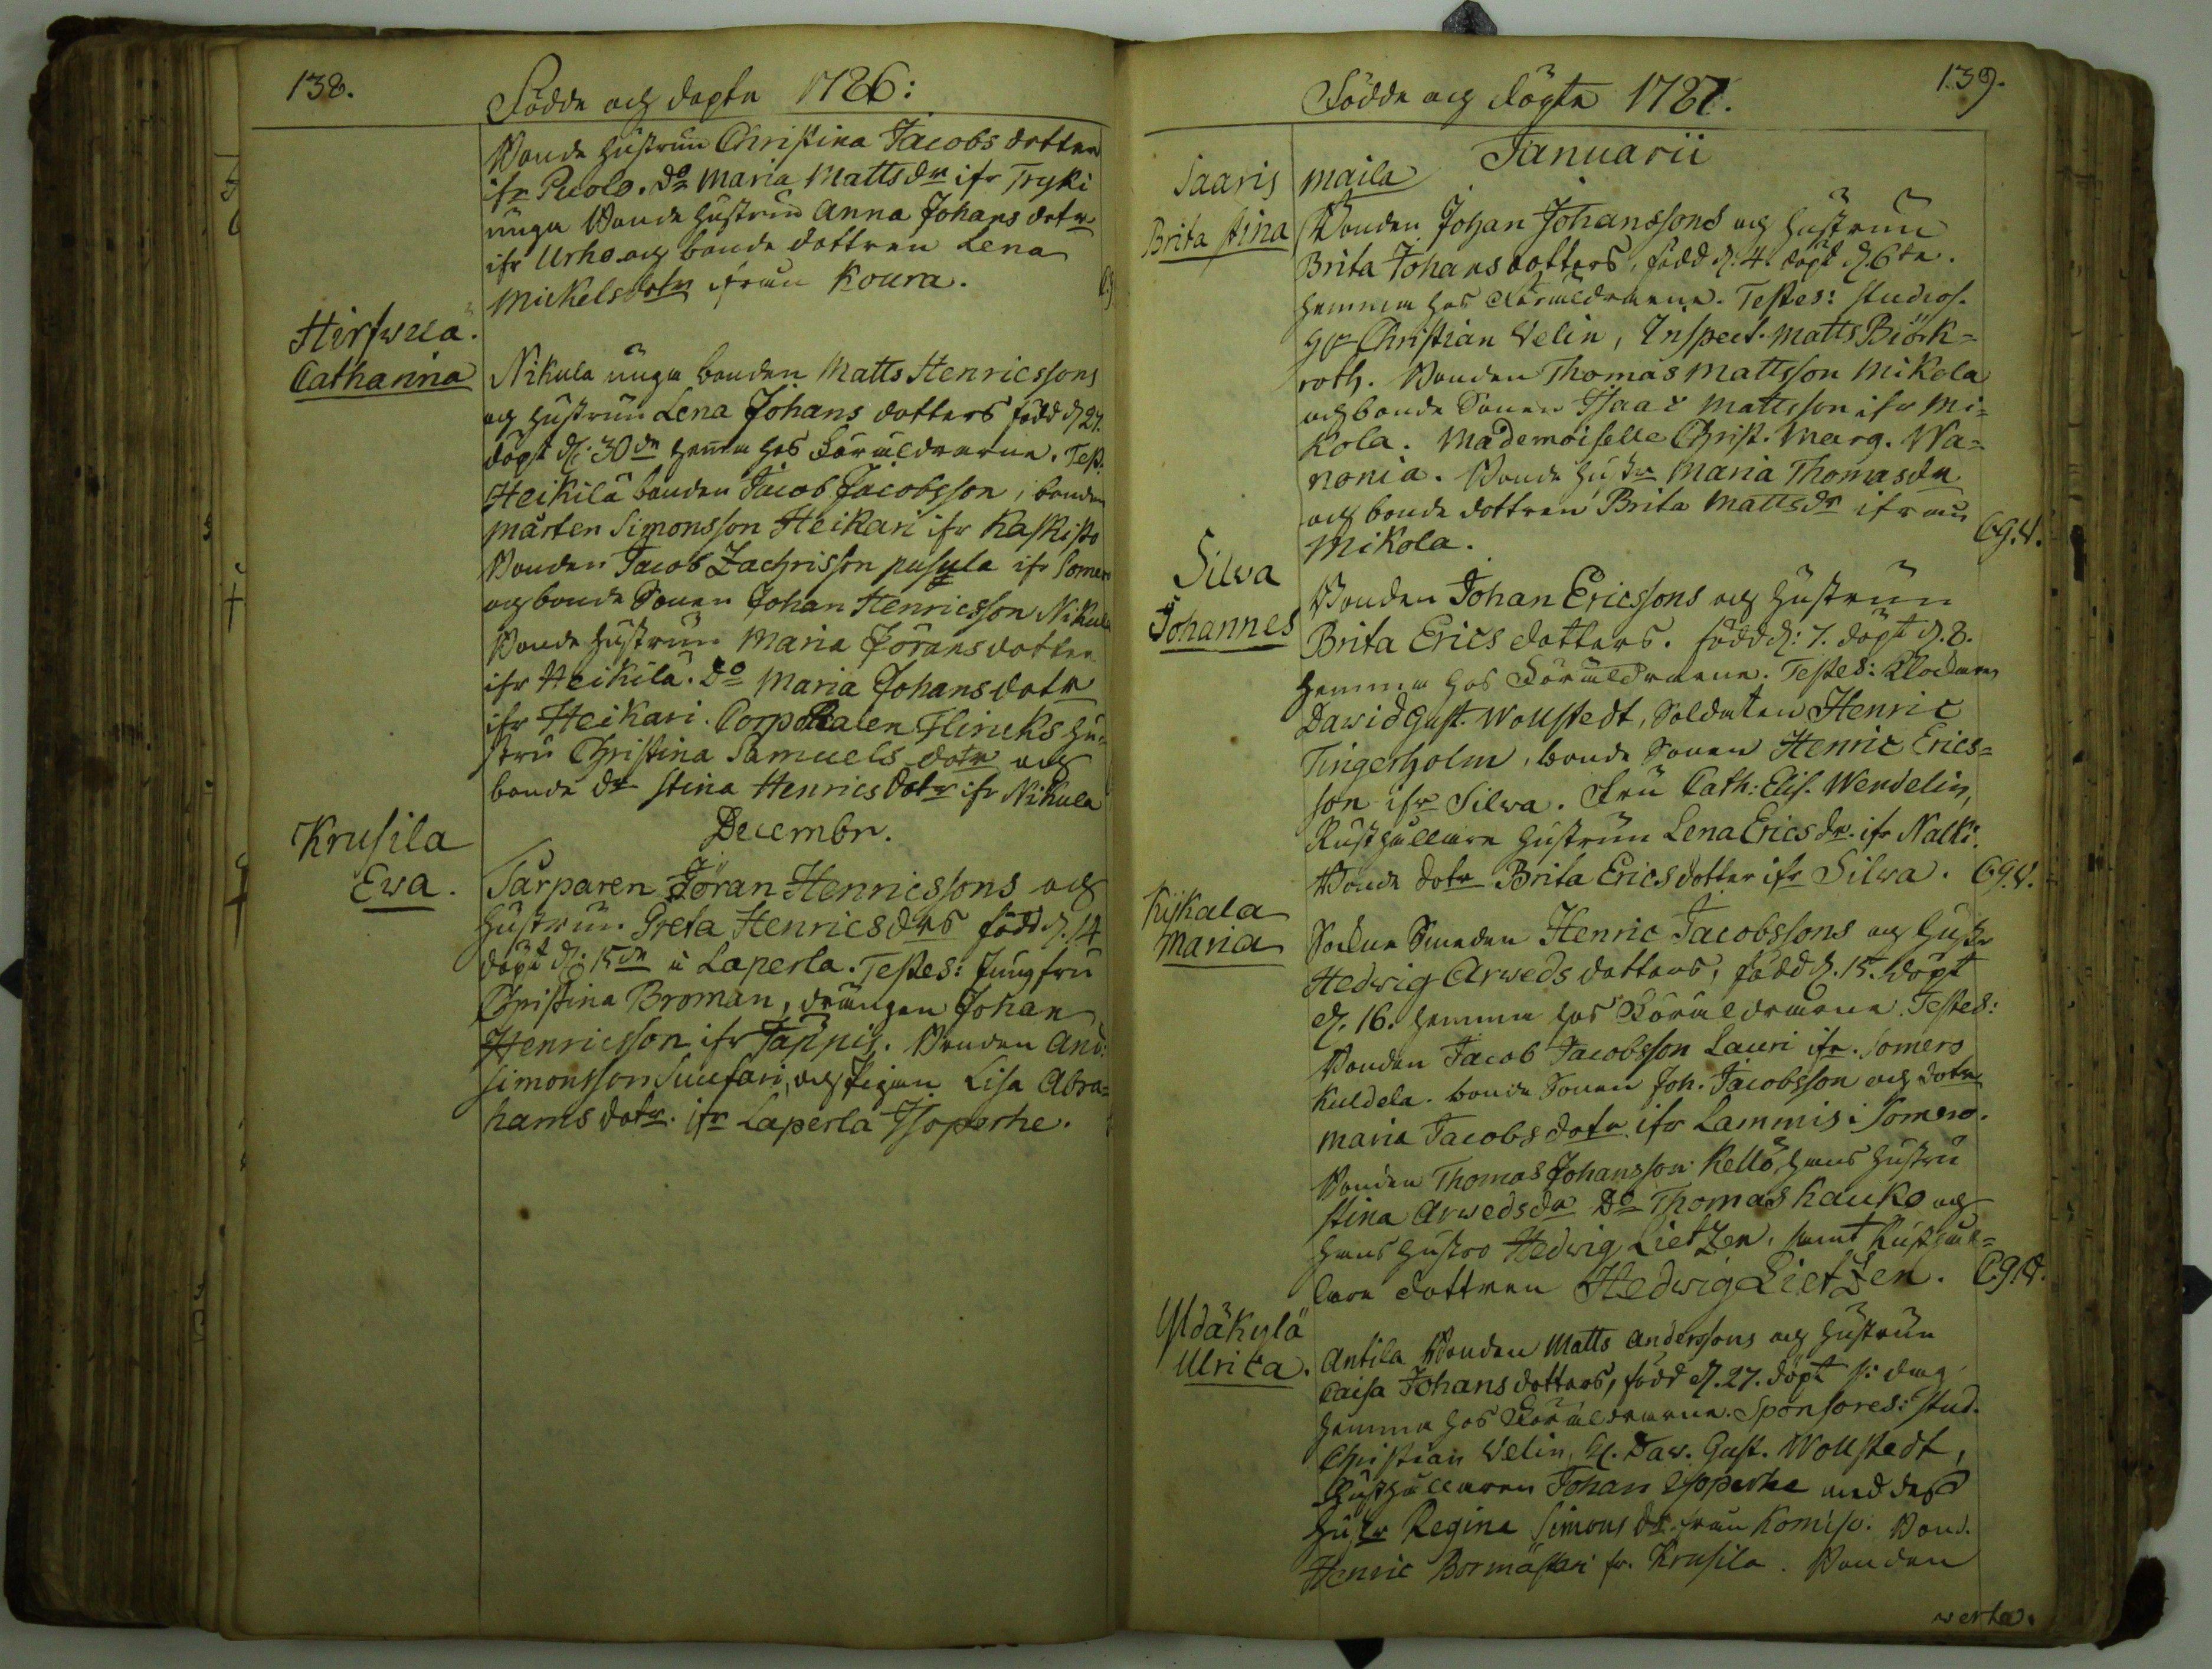 138.
Födde och döpte 1786:
Bonde hustrun Christina Jacobs dotter
ifr Puolo. Do Maria Mattsdr ifr Tryki
unga Bonde hustrun Anna Johans dotr
ifr Urho och bonde dottren Lena
Mickelsdotr ifrån Koura.
Hirswelä.
Catharina
Nikula unga bonden Matts Henricssons
och hustrun Lena Johans dotters född d 27.
döpt d: 30de hemma hos Föräldrarne. Test.
Heikilä bonden Jacob Jacobsson, bonden
Mårten Simonsson Heikari ifr Kaskisto
Bonden Jacob Zachrisson pusula ifr Somero
och bonde Sonen Johan Henricsson Nikula
Bonde hustrun Maria Jöransdotter
ifr Heikilä. Do Maria Johansdotr
ifr Heikari. Corporalen Flincks hu-
stru Christina Samuels dotr och
bonde dr Stina Henricsdotr ifr Nikula
Decembr.
Krusila
Ewa.
Tårparen Jöran Henricssons och
hustrun Greta Henricsdrs född d. 14
döpt d: 15de i Laperla. Testes: Jungfru
Christina Broman, drängen Johan
Henricsson ifr Täppis. Bonden And:
Simonsson , och pigan Lisa Abra=
hams dotr. ifr Laperla Isoperhe.
139.
Födde och döpte 1787.
Januarii
Saaris maila
Brita Stina
Bonden Johan Johanssons och hustrun
Brita Johansdotters, född d. 4. döpt d. 6te.
hemma hos Föräldrarne. Testes: Studios.
Hr Christian Welin, Inspect. Matts Biörk=
roth. Bonden Thomas Mattsson Mikola
och bonde Sonen Isaac Mattsson ifr Mi=
kola. Mademoiselle Christ. Marg. Wa=
nonia. Bonde hustr Maria Thomasdr
och bonde dottren Brita Mattsdr ifrån
Mikola. C.G.V.
Silwa
Johannes
Bonden Johan Ericssons och hustrun
Brita Erics dotters. född d: 7. döpt d. 8.
hemma hos Föräldrarne. Testes: Klockaren
Dawid Gust. Wollstedt, Soldaten Henric
Tingerholm, bonde Sonen Henric Erics=
son ifr Silwa. Fru Cath: Elis. Wendelin,
Rusthållare hustrun Lena Ericsdr. ifr Nalki.
Bonde dotr Brita Ericsdotter ifr Silwa. C.G.V.
Kiskala
Maria
Sockne Smeden Henric Jacobssons och hustr
Hedwig Arweds dotters, född d. 15. döpt
d. 16. hemma hos Föräldrarne. Testes:
Bonden Jacob Jacobsson Lauri ifr. Somero
Kuldela. bonde Sonen Joh. Jacobsson och dotr
Maria Jacobsdotr ifr Lammis i Somero.
Bonden Thomas Johansson Kellö, hans hustru
Stina Arwedsdr Do Thomas Kauko och
hans hustro Hedwig Lietzen, samt Rusthål=
lare dottren Hedwig Lietzen. C.G.V.
Yldäkylä
Ulrica.
Antila Bonden Matts Anderssons och hustrun
Caisa Johansdotters, född d. 27. döpt s: dag
hemma hos Föräldrarne. Sponsores: Stud.
Christian Welin, Kl. Daw. Gust. Wollstedt,
Rusthållaren Johan Isoperhe med dess
hustr Regina Simonsdr. från Komiso. Bond.
Henric Bormästari fr. Krusila. Bonden
verte.